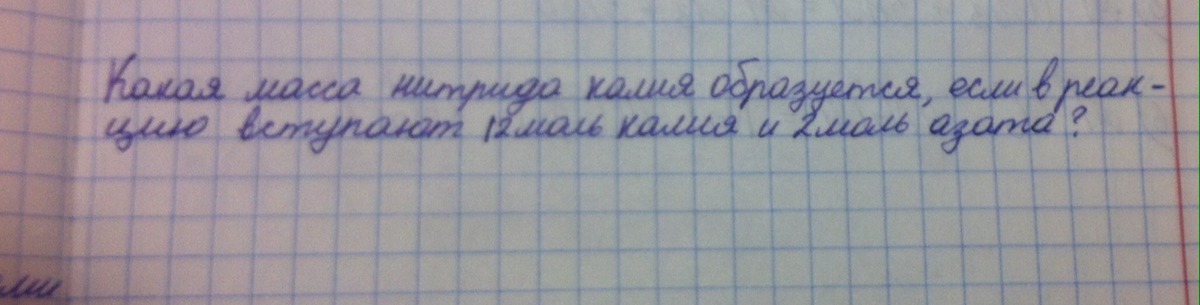 Какая масса нитрида калия образуется, если в реак-
цию вступают 12 моль калия и 2 моль азота?
ми